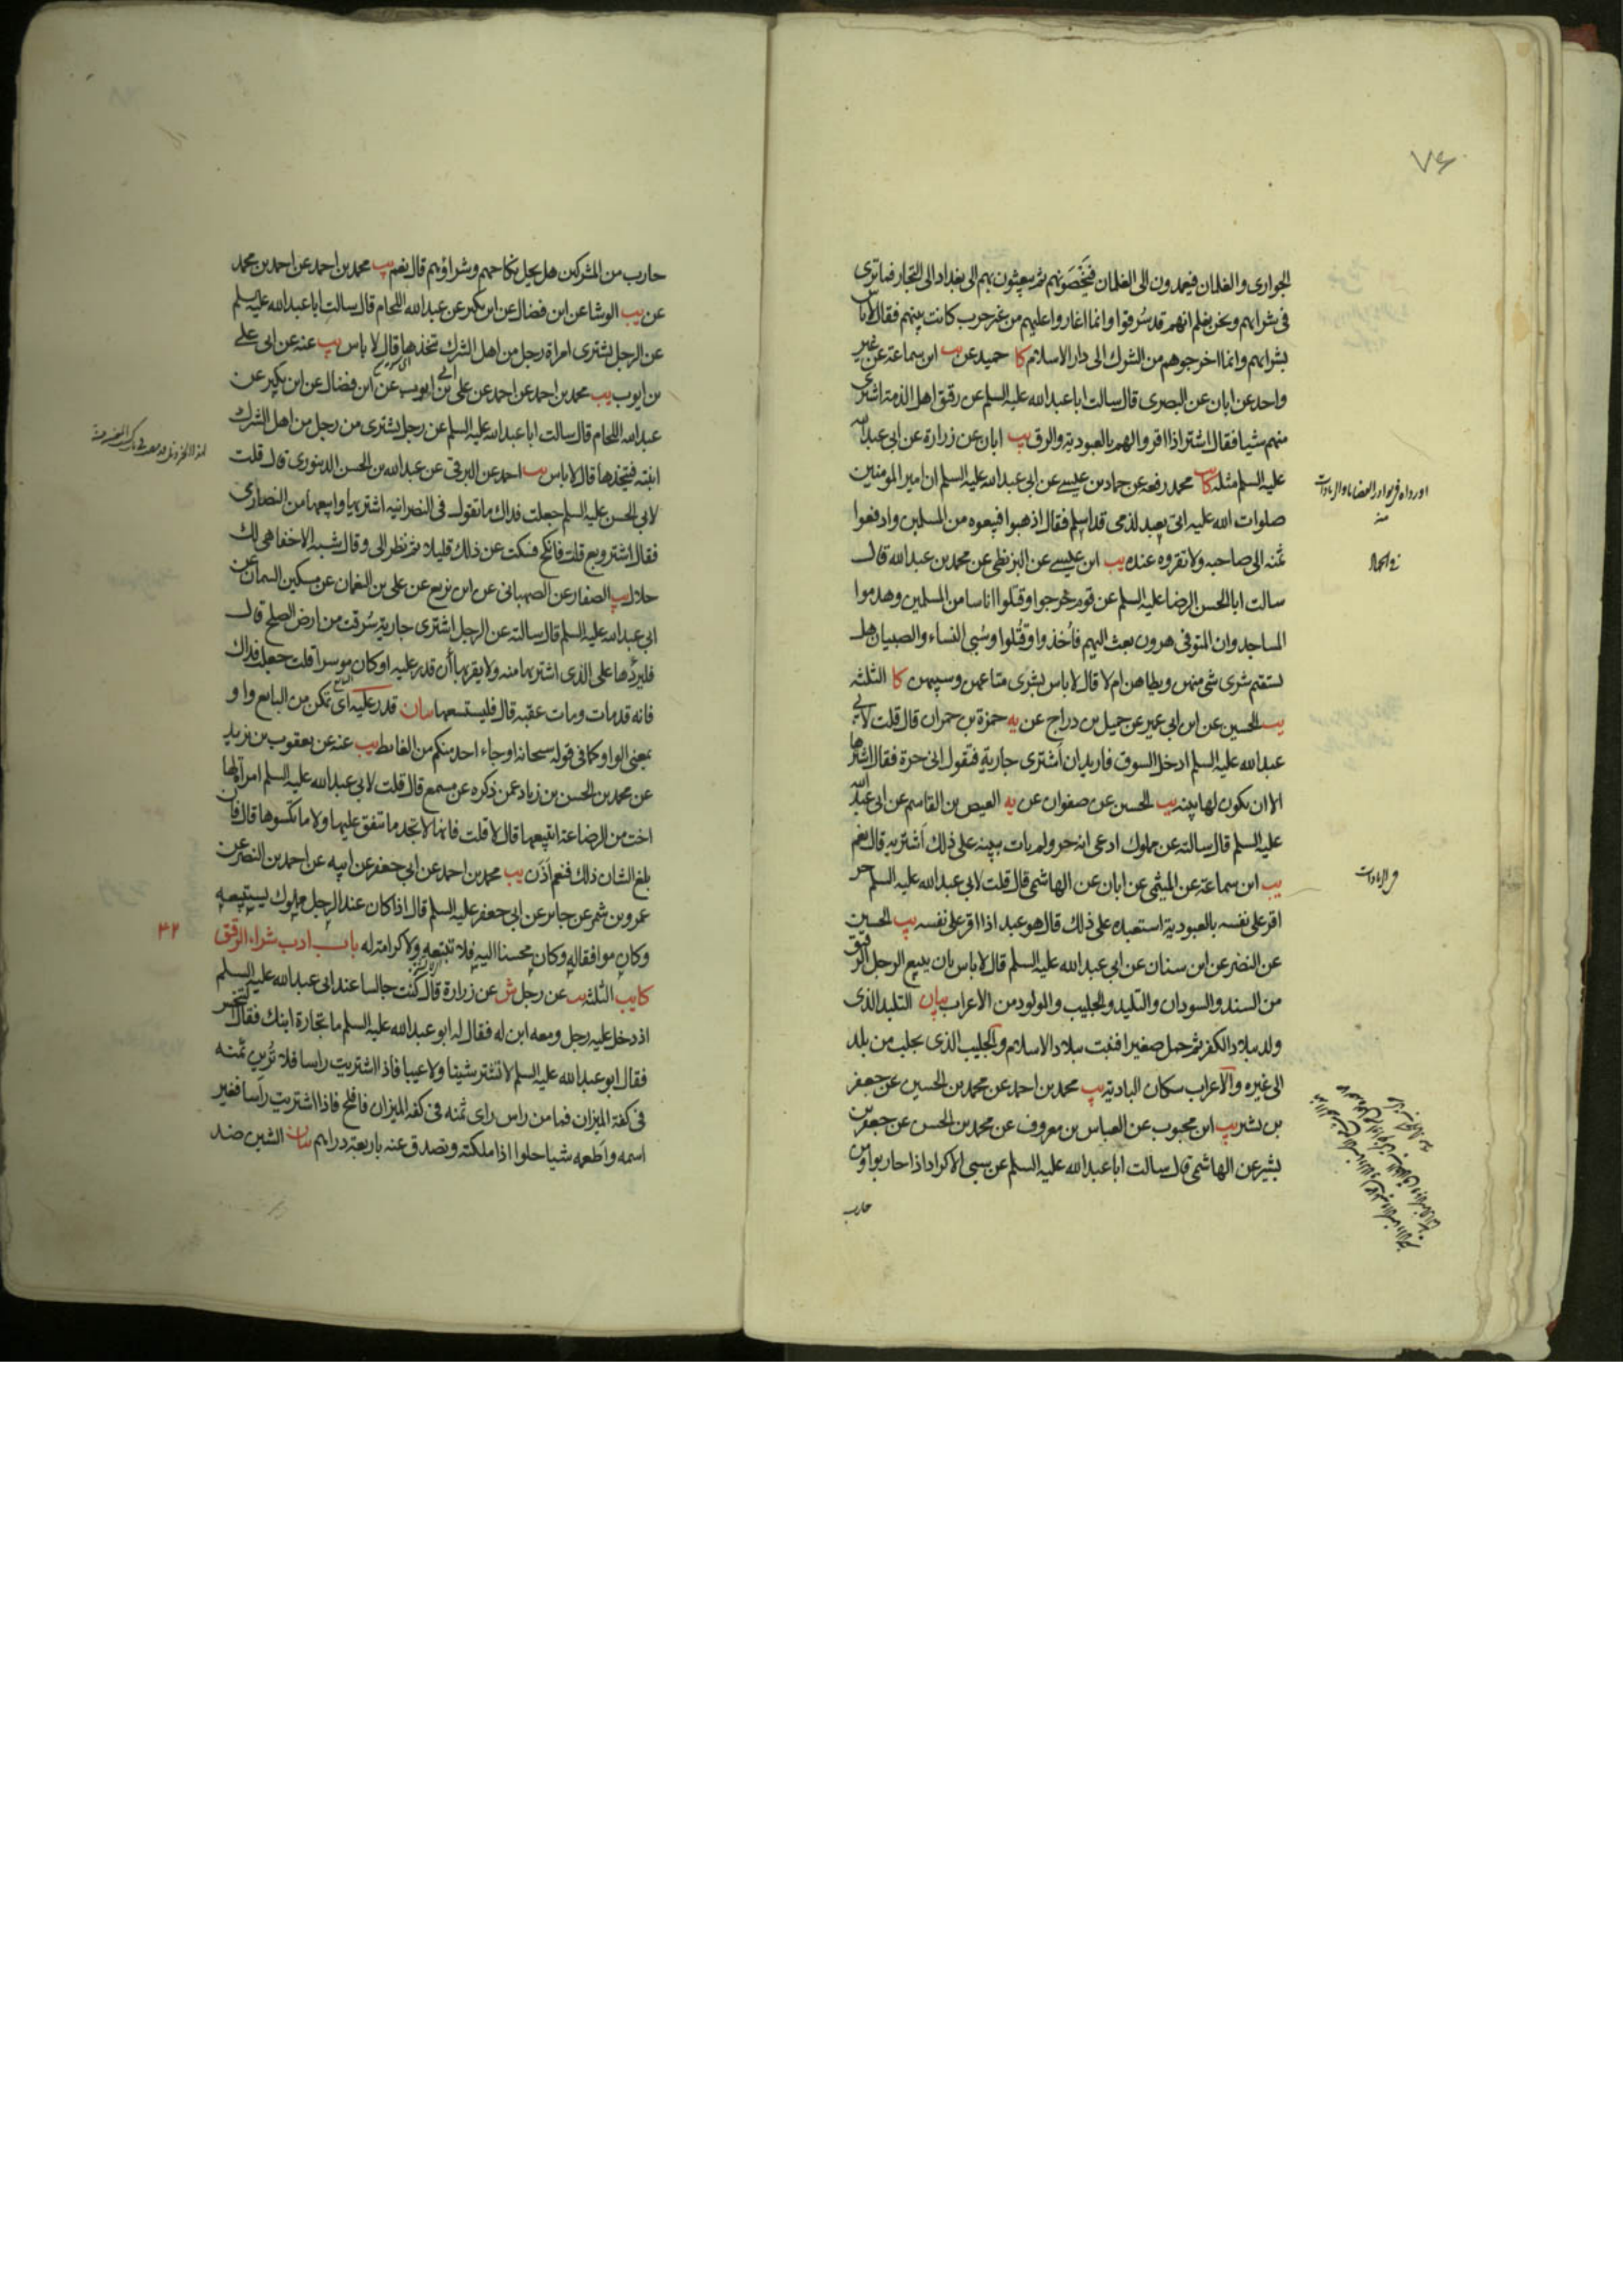 ٧٤
الجواري والغلمان فيعمدون الى الغلمان فيخصونهم ثم يبعثون بهم الى بغداد الى التجار فما ترى
فى شرائهم ونحن نعلم انهم قد سُرقوا وانما اغاروا عليهم من غير حرب كانت بينهم فقال لا باس
بشرائهم وانما اخرجوهم من الشرك الى دار الاسلام كا حميد عن يب ابن سماعة عن غير
واحد عن ابان عن البصرى قال سالت ابا عبد الله عليه السلم عن رقيق اهل الذمة اشترى
منهم شيا فقال اشتر اذا اقروا لهم بالعبودية والرق يب ابان عن زرارة عن ابى عبد الله
عليه السلم مثله كا يب محمد رفعه عن حماد بن عيسى عن ابى عبد الله عليه السلم ان امير المومنين
صلوات الله عليه اتى بعبد لذمى قد اسلم فقال اذهبوا فبيعوه من المسلمين وادفعوا
ثمنه الى صاحبه ولا تقروه عنده يب ابن عيسى عن البزنطى عن محمد بن عبد الله قال
سالت ابا الحسن الرضا عليه السلم عن قوم خرجوا وقتلوا اناسا من المسلمين وهدموا
المساجد وان المتوفى هرون بعث اليهم فاُخذوا وقُتلوا وسُبى النساء والصبيان هل
يستقيم شرى شى منهن ويطاهن ام لا قال لا باس بشرى متاعهن وسبيهن كا الثلثة
يب الحسين عن ابن ابى عمير عن جميل بن دراج عن يه حمزة بن حمران قال قلت لابى
عبد الله عليه السلم ادخل السوق فاريد ان أشترى جارية فتقول انى حرة فقال اشترها
الا ان يكون لها بينه يب الحسين عن صفوان عن يه العيص بن القاسم عن ابى عبد الله
عليه السلم قال سالته عن مملوك ادعى انه حر ولم يات ببينة على ذلك أشتريه قال نعم
يب ابن سماعة عن الميثمى عن ابان عن الهاشمى قال قلت لابى عبد الله عليه السلم حر
اقر على نفسه بالعبودية استعبده على ذلك قال هو عبد اذا اقر على نفسه يب الحسين
عن النضر عن ابن سنان عن ابى عبد الله عليه السلم قال لا باس بان يبيع الرجل الرقيق
من السند والسودان والتليد والجليب والمولود من الاعراب بيان التليد الذى
ولد ببلاد الكفر ثم حمل صغيرا فنبت ببلاد الاسلام والجليب الذى يجلب من بلد
الى غيره والاعراب سكان البادية يب محمد بن احمد عن محمد بن الحسين عن جعفر
بن بشير يب ابن محبوب عن العباس بن معروف عن محمد بن الحسن عن جعفر بن
بشير عن الهاشمى قال سالت ابا عبد الله عليه السلم عن سبى الاكراد اذا حاربوا ومن
حارب
حارب من المشركين هل يحل نكاحهم وشراؤهم قال نعم يب محمد بن احمد عن احمد بن محمد
عن يب الوشا عن ابن فضال عن ابن بكير عن عبد الله اللحام قال سالت ابا عبد الله عليه السلم
عن الرجل يشترى امراة رجل من اهل الشرك يتخذها قال لا باس يب عنه عن ابى على
بن ايوب يب محمد بن احمد عن احمد عن على بن ايوب عن ابن فضال عن ابن بكير عن
عبد الله اللحام قال سالت ابا عبد الله عليه السلم عن رجل يشترى من رجل من اهل الشرك
ابنته فيتخذها قال لا باس يب احمد عن البرقى عن عبد الله بن الحسن الدينورى قال قلت
لابى الحسن عليه السلم جعلت فداك ما تقول فى النصرانيه اشتريها وابيعها من النصارى
فقال اشتر وبع قلت فانكح فسكت عن ذلك قليلا ثم نظر الى وقال شبه الاخفا هى لك
حلال يب الصفار عن الصهبانى عن ابن بزيع عن على بن النعمان عن مسكين السمان عن
ابى عبد الله عليه السلم قال سالته عن الرجل اشترى جارية سُرقت من ارض الصلح قال
فليردّها على الذى اشتريها منه ولا يقربها ان قدر عليه او كان موسرا قلت جعلت فداك
فانه قد مات ومات عقبه قال فليستسعها بيان قدر عليه اى تمكن من البايع واو
بمعنى الواو كما فى قوله سبحانه او جاء احد منكم من الغائط يب عنه عن يعقوب بن يزيد
عن محمد بن الحسن بن زياد عمن ذكره عن مسمع قال قلت لابى عبد الله عليه السلم امراة لها
اخت من الرضاعة ابتيعها قال لا قلت فانها لا تجد ما تنفق عليها ولا ما تكسوها قال فان
بلغ الشان ذلك فنعم اذن يب محمد بن احمد عن ابى جعفر عن ابيه عن احمد بن النضر عن
عمرو بن شمر عن جابر عن ابى جعفر عليه السلم قال اذا كان عند الرجل مملوك يستبيعه
وكان موافقا له وكان محسنا اليه فلا تبعه ولا كرامة له باب ادب شراء الرقيق
٤٢
كا يب الثلثة يب عن رجل ش عن زرارة قال كنت جالسا عند ابى عبد الله عليه السلم
اذ دخل عليه رجل ومعه ابن له فقال له ابو عبد الله عليه السلم ما تجارة ابنك فقال التنخس
فقال ابو عبد الله عليه السلم لا تشتر شينا ولا عيبا فاذا اشتريت راسا فلا تُرين ثمنه
فى كفة الميزان فما من راس راى ثمنه فى كفة الميزان فافلح فاذا اشتريت رأسا فغير
اسمه واطعمه شيا حلوا اذا ملكته وتصدق عنه باربعة دراهم بيان الشين ضد